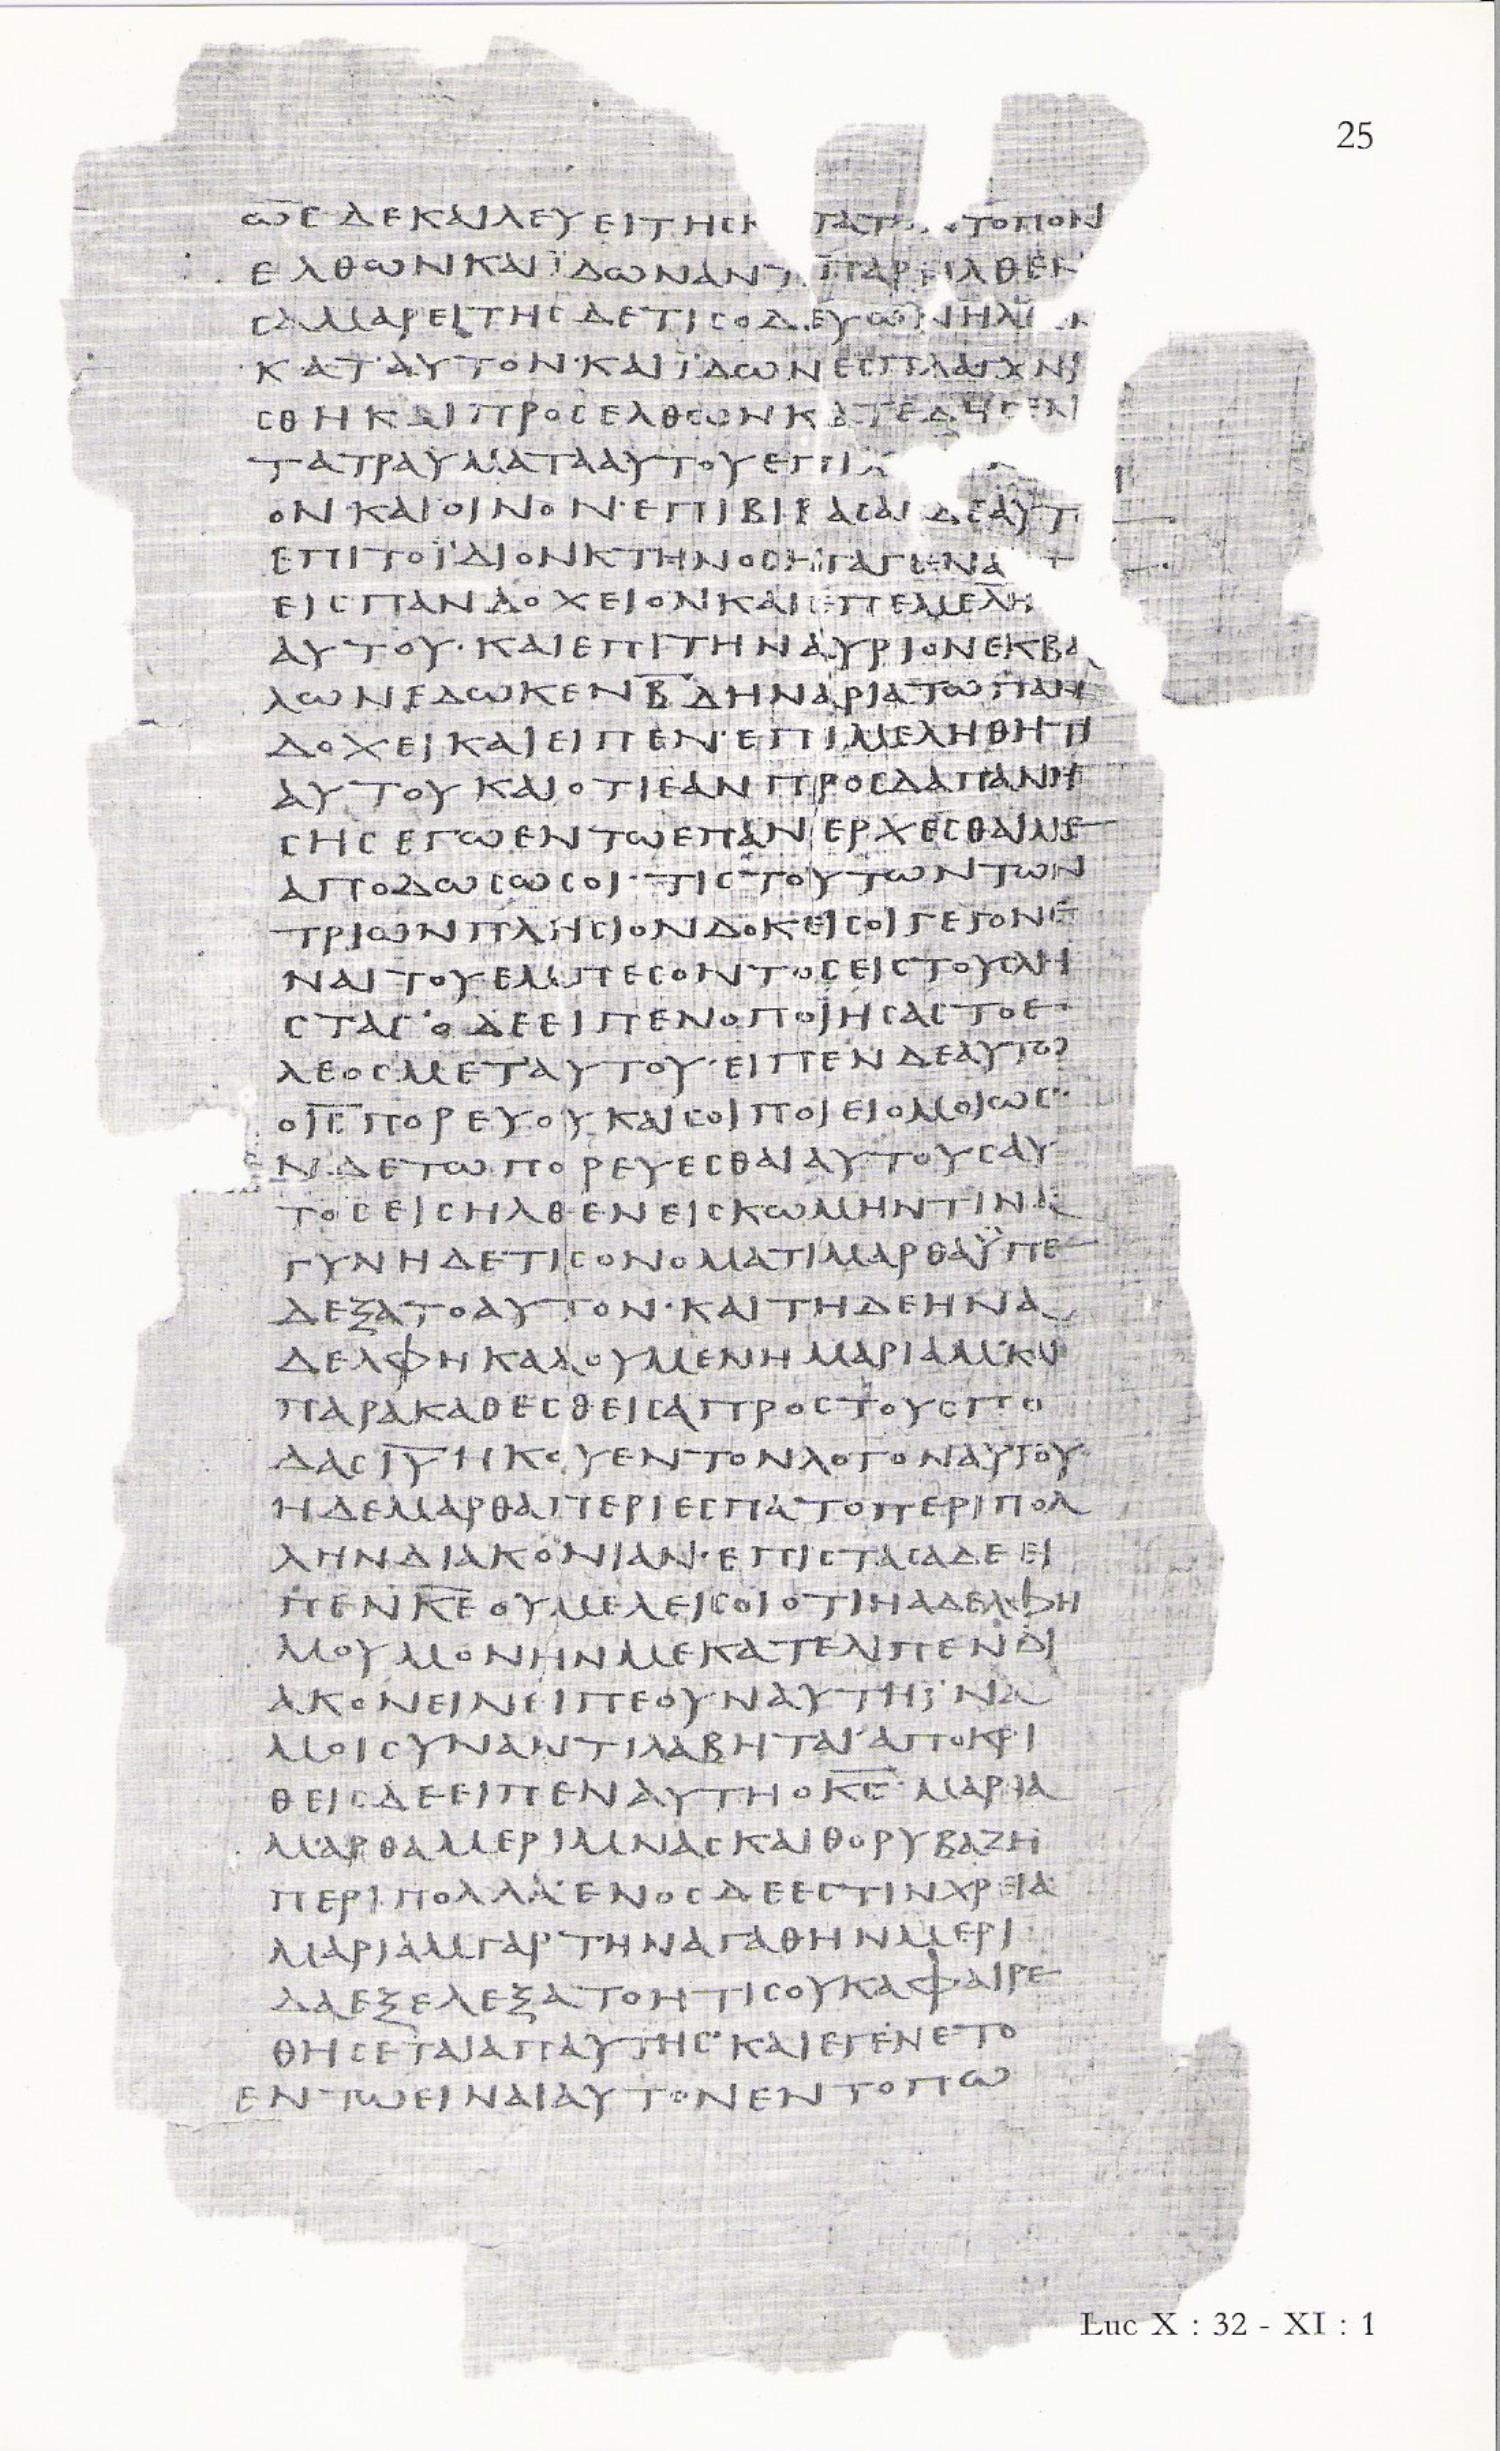 25
ω̅ϲ ΔΕ ΚΑΙ ΛΕΥΕΙΤΗϹ ΚΑΤΑ ΤΟΠΟΝ
ΕΛΘΩΝ ΚΑΙ ΪΔΩΝ ΑΝΤΙΠΑΡΗΛΘΕΝ
ϹΑΜΑΡΕΙΤΗϹ ΔΕ ΤΙϹ ΟΔΕΥΩΝ ΗΛΘΕΝ
ΚΑΤ ΑΥΤΟΝ· ΚΑΙ ΪΔΩΝ ΕϹΠΛΑΓΧΝΙ
ϹΘΗ ΚΑΙ ΠΡΟϹΕΛΘΩΝ ΚΑΤΕΔΗϹΕΝ
ΤΑ ΤΡΑΥΜΑΤΑ ΑΥΤΟΥ
ΟΝ ΚΑΙ ΟΙΝΟΝ· ΕΠΙΒΙΒΑϹΑϹ ΔΕ ΑΥΤ
ΕΠΙ ΤΟ ΪΔΙΟΝ ΚΤΗΝΟϹ ΗΓΑΓΕΝ Α
ΕΙϹ ΠΑΝΔΟΧΕΙΟΝ ΚΑΙ ΕΠΕΜΕΛΗ
ΑΥΤΟΥ· ΚΑΙ ΕΠΙ ΤΗΝ ΑΥΡΙΟΝ ΕΚΒΑ
ΛΩΝ ΕΔΩΚΕΝ Β̅ ΔΗΝΑΡΙΑ ΤΩ ΠΑΝ
ΔΟΧΕΙ ΚΑΙ ΕΙΠΕΝ· ΕΠΙΜΕΛΗΘΗΤΙ
ΑΥΤΟΥ ΚΑΙ ΟΤΙ ΕΑΝ ΠΡΟϹΔΑΠΑΝΗ
ϹΗϹ ΕΓΩ ΕΝ ΤΩ ΕΠΑΝΕΡΧΕϹΘΑΙ ΜΕ
ΑΠΟΔΩϹΩ ϹΟΙ· ΤΙϹ ΤΟΥΤΩΝ ΤΩΝ
ΤΡΙΩΝ ΠΛΗϹΙΟΝ ΔΟΚΕΙ ϹΟΙ ΓΕΓΟΝΕ
ΝΑΙ ΤΟΥ ΕΜΠΕϹΟΝΤΟϹ ΕΙϹ ΤΟΥϹ ΛΗ
ϹΤΑϹ· Ο ΔΕ ΕΙΠΕΝ Ο ΠΟΙΗϹΑϹ ΤΟ Ε
ΛΕΟϹ ΜΕΤ ΑΥΤΟΥ· ΕΙΠΕΝ ΔΕ ΑΥΤΩ
Ο Ι̅Ϲ̅ ΠΟΡΕΥΟΥ ΚΑΙ ϹΟΙ ΠΟΙΕΙ ΟΜΟΙΩϹ·
ΕΝ ΔΕ ΤΩ ΠΟΡΕΥΕϹΘΑΙ ΑΥΤΟΥϹ ΑΥ
ΤΟϹ ΕΙϹΗΛΘΕΝ ΕΙϹ ΚΩΜΗΝ ΤΙΝΑ
ΓΥΝΗ ΔΕ ΤΙϹ ΟΝΟΜΑΤΙ ΜΑΡΘΑ ΫΠΕ
ΔΕΞΑΤΟ ΑΥΤΟΝ· ΚΑΙ ΤΗΔΕ ΗΝ Α
ΔΕΛΦΗ ΚΑΛΟΥΜΕΝΗ ΜΑΡΙΑΜ ΚΑΙ
ΠΑΡΑΚΑΘΕϹΘΕΙϹΑ ΠΡΟϹ ΤΟΥϹ ΠΟ
ΔΑϹ Ι̅Υ̅ ΗΚΟΥΕΝ ΤΟΝ ΛΟΓΟΝ ΑΥΤΟΥ·
Η ΔΕ ΜΑΡΘΑ ΠΕΡΙΕϹΠΑΤΟ ΠΕΡΙ ΠΟΛ
ΛΗΝ ΔΙΑΚΟΝΙΑΝ· ΕΠΙϹΤΑϹΑ ΔΕ ΕΙ
ΠΕΝ Κ̅Ε̅ ΟΥ ΜΕΛΕΙ ϹΟΙ ΟΤΙ Η ΑΔΕΛΦΗ
ΜΟΥ ΜΟΝΗΝ ΜΕ ΚΑΤΕΛΙΠΕΝ ΔΙ
ΑΚΟΝΕΙΝ ΕΙΠΕ ΟΥΝ ΑΥΤΗ ΪΝΑ
ΜΟΙ ϹΥΝΑΝΤΙΛΑΒΗΤΑΙ· ΑΠΟΚΡΙ
ΘΕΙϹ ΔΕ ΕΙΠΕΝ ΑΥΤΗ Ο Κ̅Ϲ̅· ΜΑΡΘΑ
ΜΑΡΘΑ ΜΕΡΙΜΝΑϹ ΚΑΙ ΘΟΡΥΒΑΖΗ
ΠΕΡΙ ΠΟΛΛΑ· ΕΝΟϹ ΔΕ ΕϹΤΙΝ ΧΡΕΙΑ
ΜΑΡΙΑΜ ΓΑΡ ΤΗΝ ΑΓΑΘΗΝ ΜΕΡΙ
ΔΑ ΕΞΕΛΕΞΑΤΟ ΗΤΙϹ ΟΥΚ ΑΦΑΙΡΕ
ΘΗϹΕΤΑΙ ΑΠ ΑΥΤΗϹ· ΚΑΙ ΕΓΕΝΕΤΟ
ΕΝ ΤΩ ΕΙΝΑΙ ΑΥΤΟΝ ΕΝ ΤΟΠΩ
Luc X : 32 - XI : 1